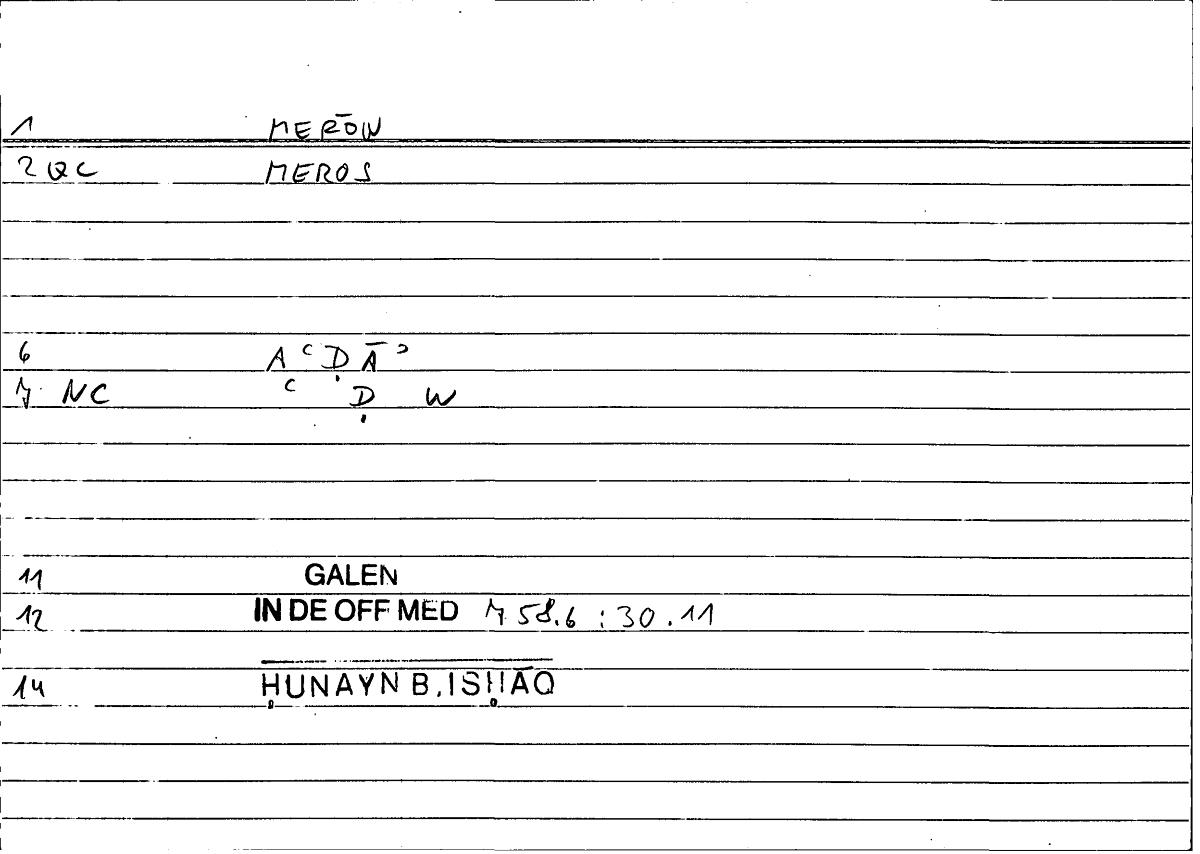 1 MERŌN
2 QC MEROS
6 AʿḌĀʾ
7 NC ʿ Ḍ W
11 GALEN
12 IN DE OFF MED 7 58.6 : 30.11
14 ḤUNAYN B. ISḤĀQ